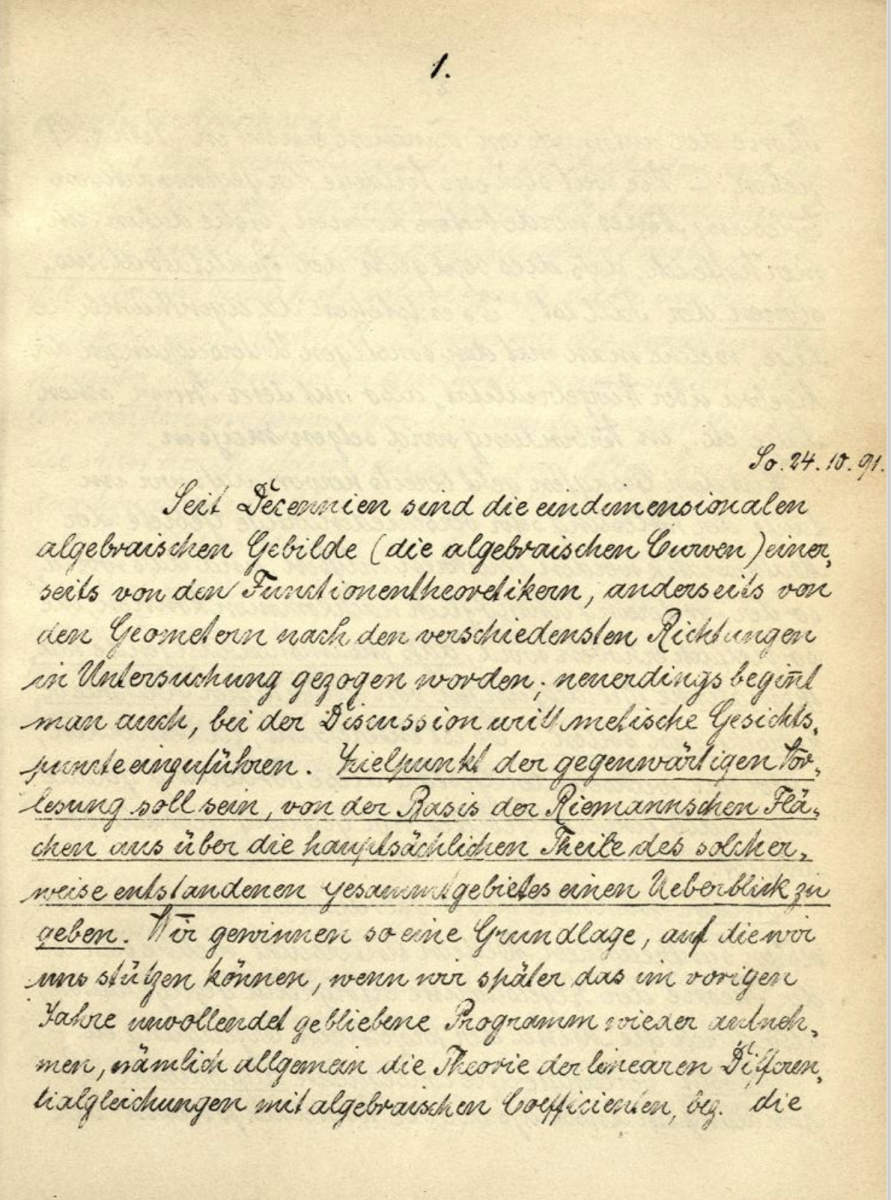 1.
So. 24.10.91.
Seit Decennien sind die eindimensionalen
algebraischen Gebilde (die algebraischen Curven) einer-
seits von den Functionentheoretikern, anderseits von
den Geometern nach den verschiedensten Richtungen
in Untersuchung gezogen worden; neuerdings begin̄t
man auch, bei der Discussion arithmetische Gesichts-
puncte einzuführen. Zielpunkt der gegenwärtigen Vor-
lesung soll sein, von der Basis der Riemannschen Flä-
chen aus über die hauptsächlichen Theile des solcher-
weise entstandenen Gesammtgebietes einen Ueberblick zu
geben. Wir gewinnen so eine Grundlage, auf die wir
uns stützen können, wenn wir später das im vorigen
Jahre unvollendet gebliebene Programm wieder aufneh-
men, nämlich allgemein die Theorie der linearen Differen-
tialgleichungen mit algebraischen Coefficienten, bez. die